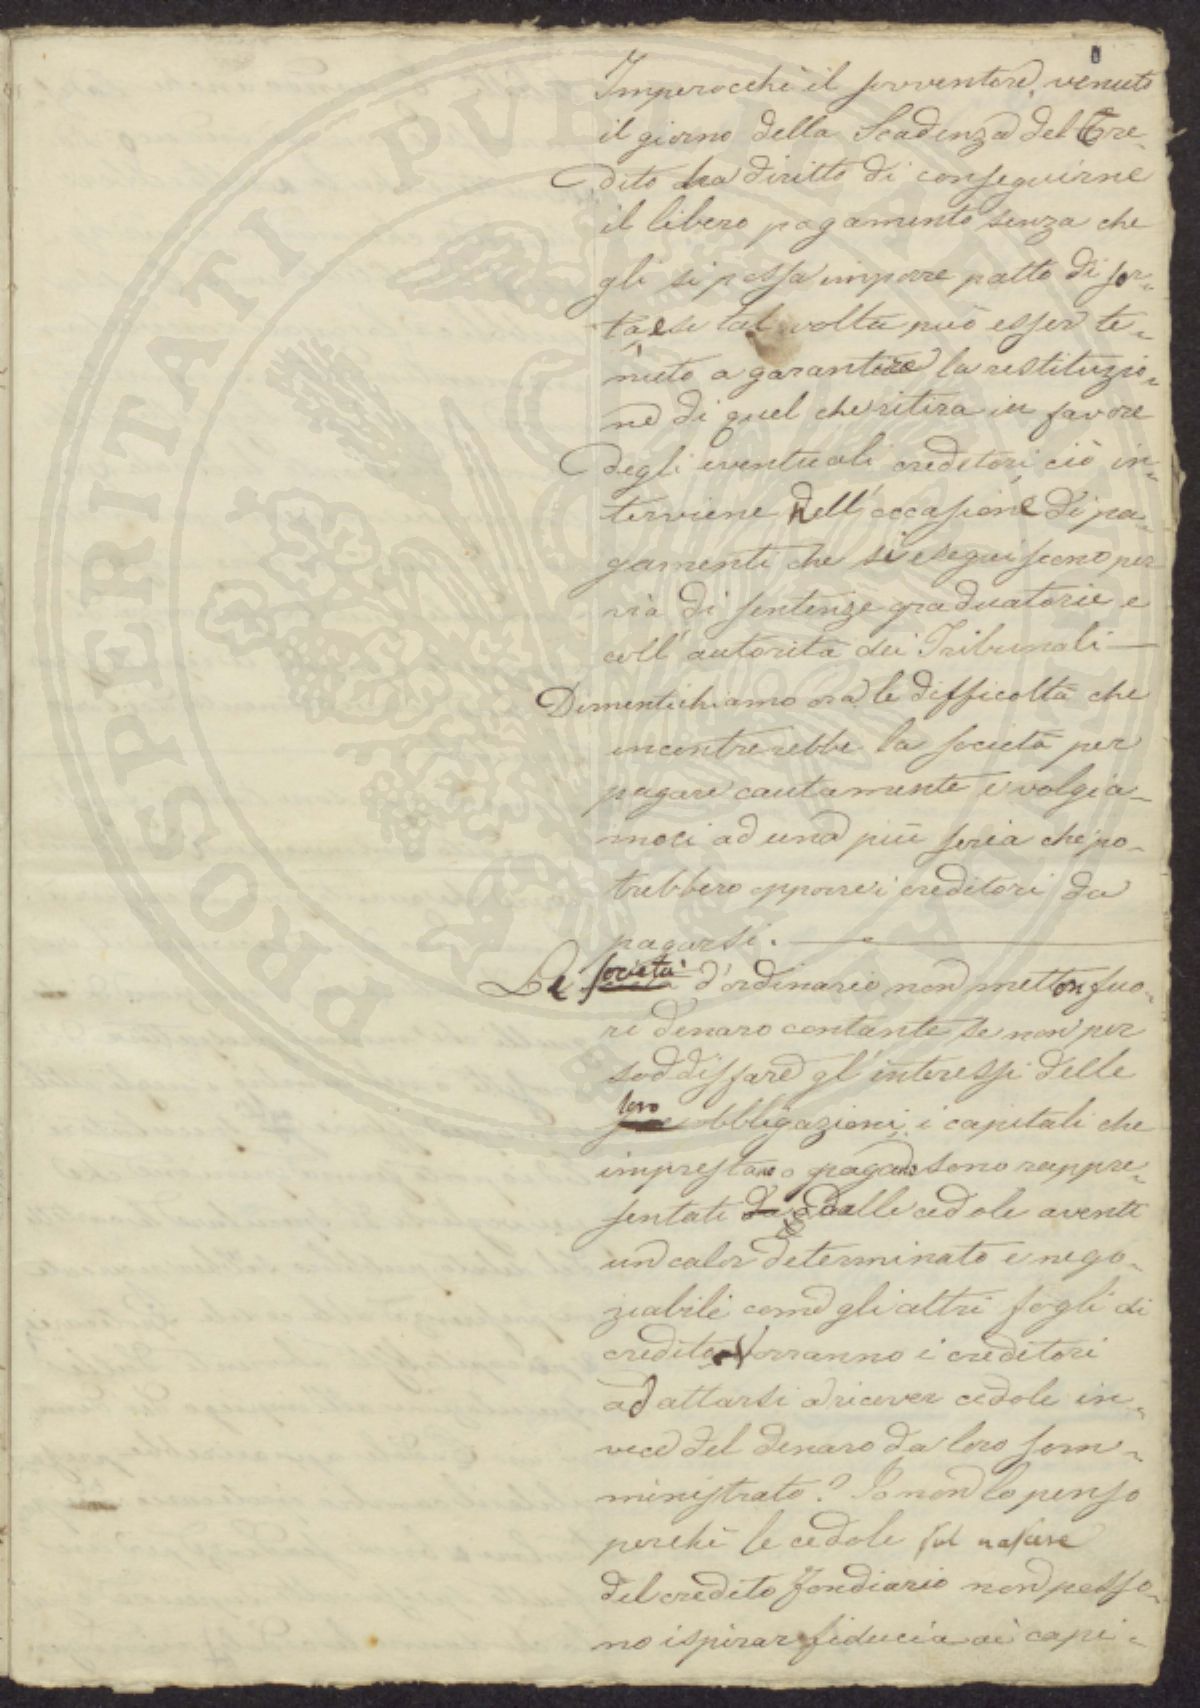 Imperocchè il sovventore, venuto
il giorno della Scadenza del Cre-
dito ha diritto di conseguirne
il libero pagamento senza che
gli si possa imporre patto di sor-
ta e se tal volta può esser te-
nuto a garantire la restituzio-
ne di quel che ritira in favore
degli eventuali creditori, ciò in-
terviene nell'occasione di pa-
gamenti che si eseguiscono per
via di sentenze graduatorie e
coll'autorità dei Tribunali —
Dimentichiamo ora le difficoltà che
incontrerebbe la società per
pagare cautamente e volgia-
moci ad una più seria che po-
trebbero opporre i creditori da
pagarsi. —
Le società d'ordinario non metton fuo-
ri denaro contante se non per
soddisfare gl'interessi delle
loro obbligazioni; i capitali che
imprestano o pagano sono rappre-
sentati dalle cedole aventi
un valor determinato e nego-
ziabile come gli altri fogli di
credito. Vorranno i creditori
adattarsi a ricever cedole in-
vece del denaro da loro som-
ministrato? Io non lo penso
perchè le cedole sul nascere
del credito fondiario non posso-
no ispirar fiducia ai capi-
PROSPERITATI PVBLICAE